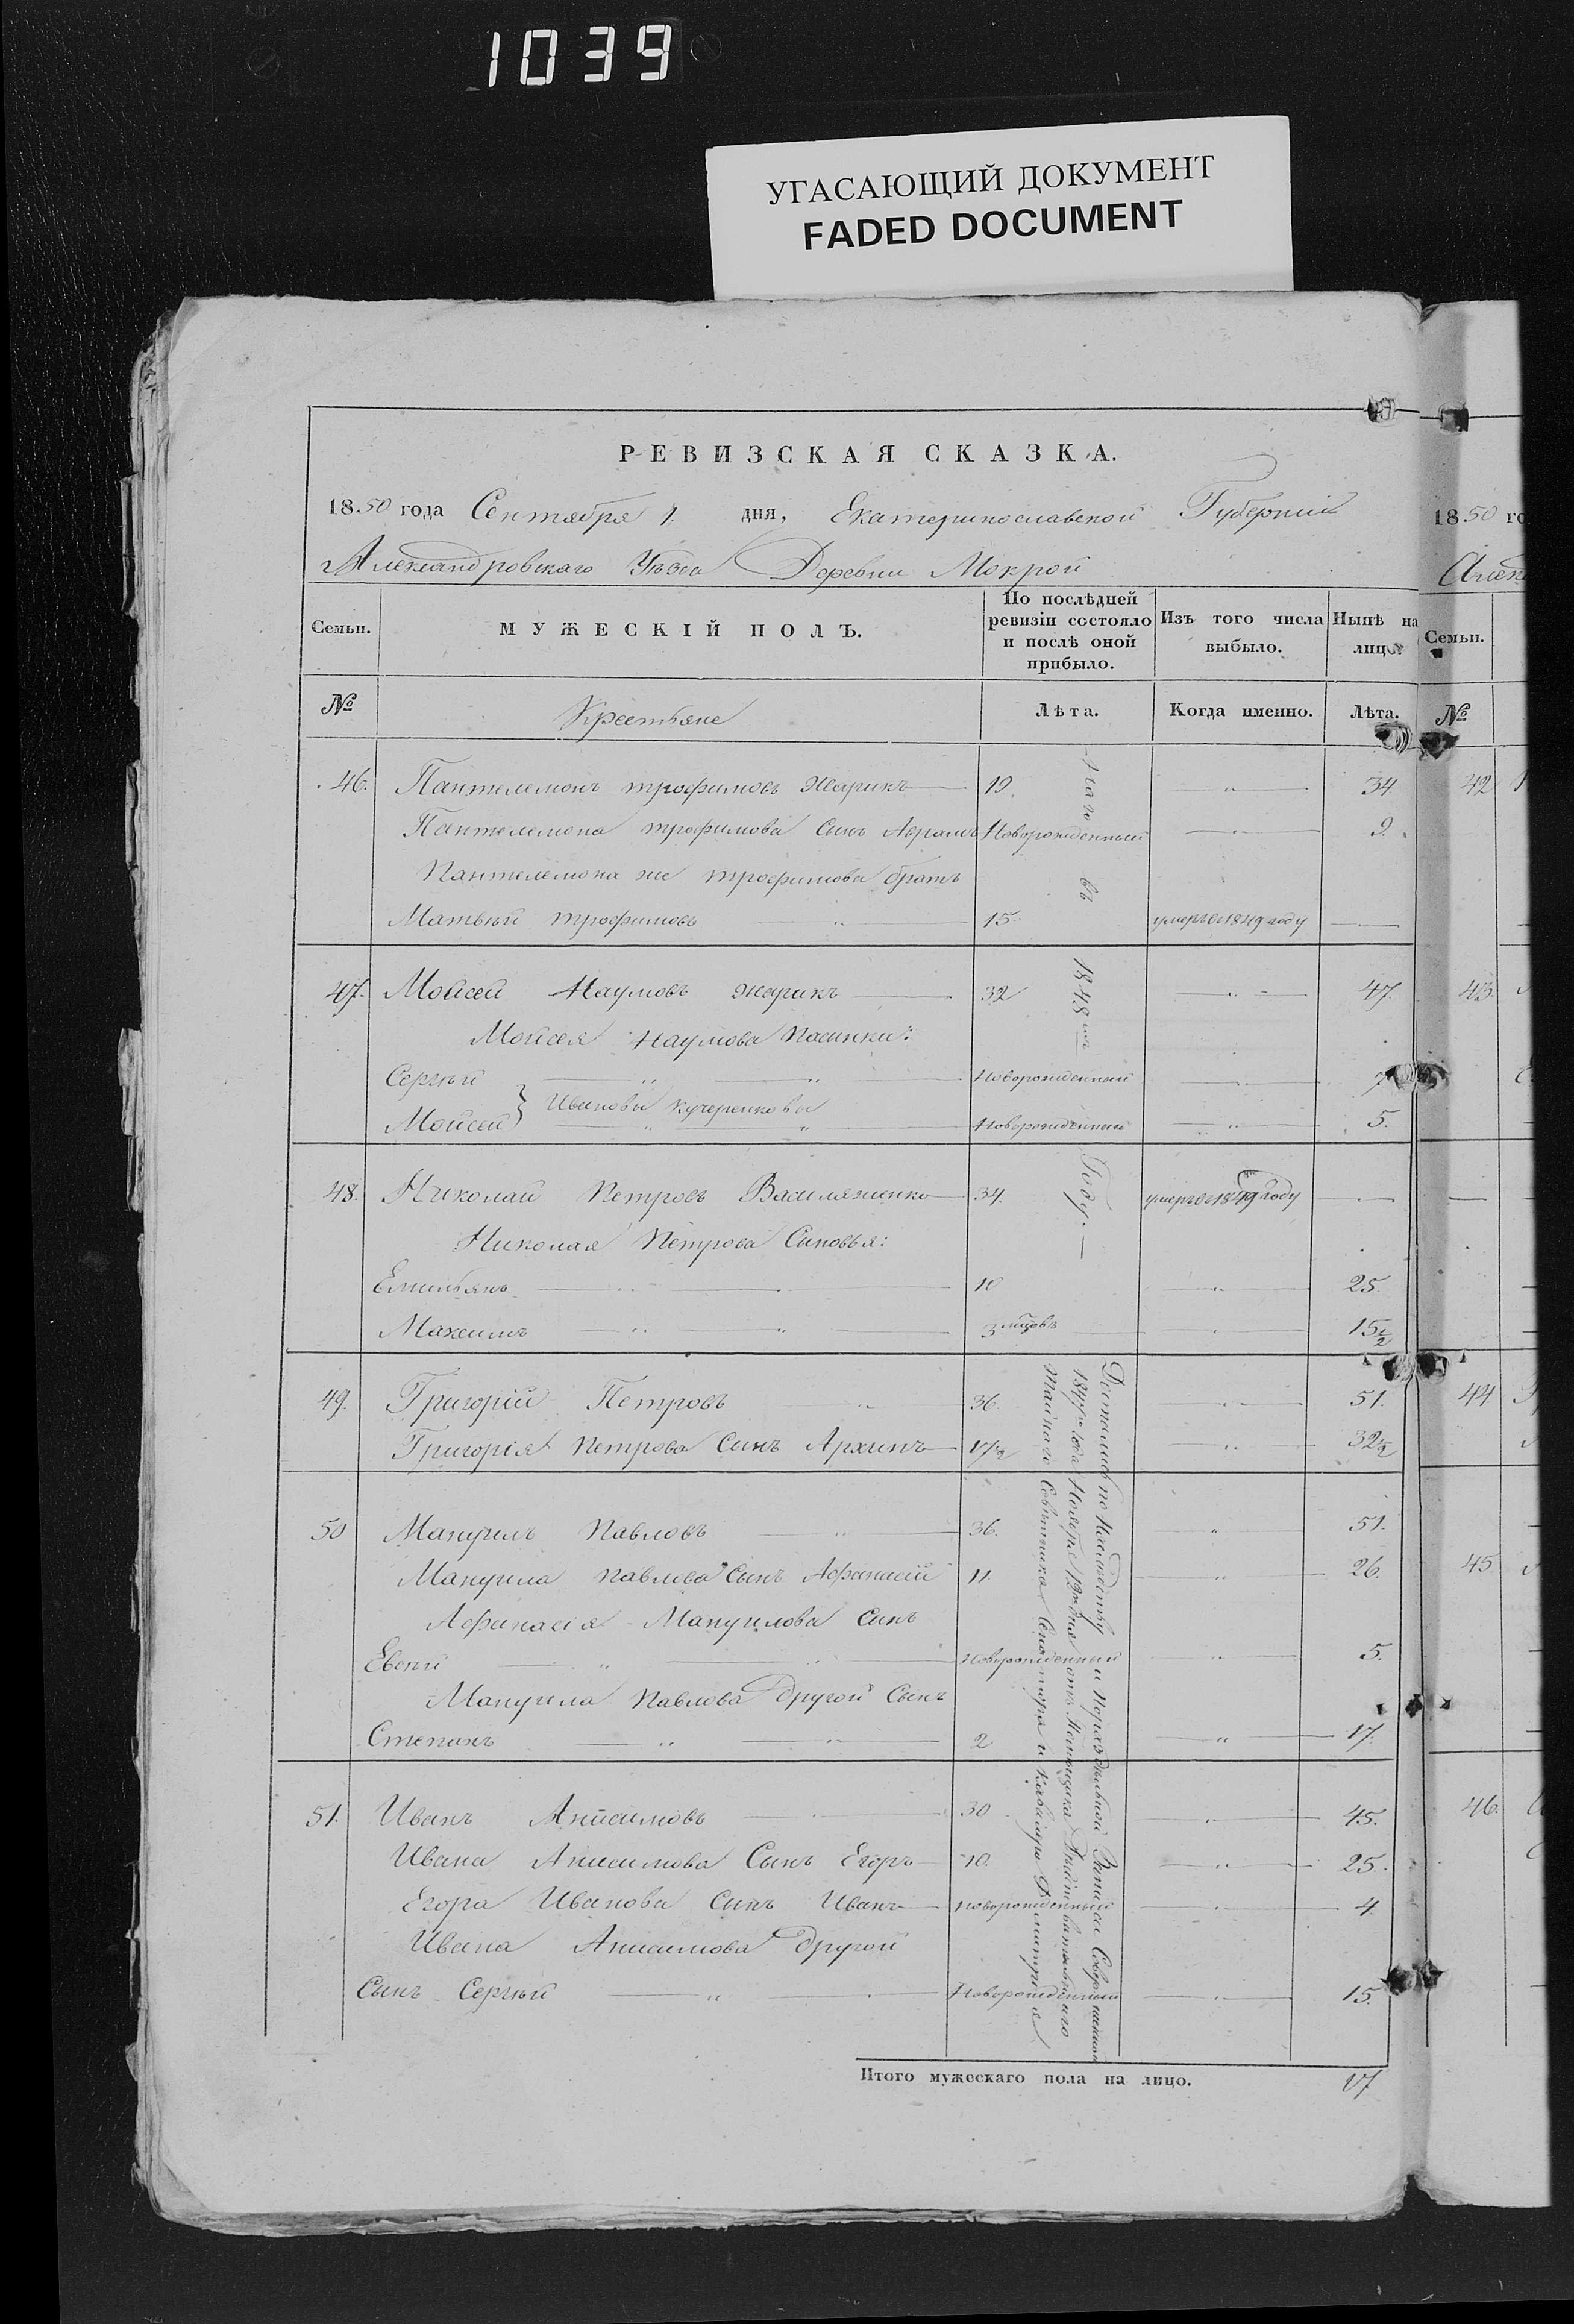 1039
УГАСАЮЩИЙ ДОКУМЕНТ
FADED DOCUMENT
РЕВИЗСКАЯ СКАЗКА.
1850 года Сентября 1. дня, Екатеринославской Губернии
Александровскаго Уѣзда Деревни Мокрой
Семьи.
МУЖЕСКІЙ ПОЛЪ.
По послѣдней ревизіи состояло и послѣ оной прибыло.
Изъ того числа выбыло.
Нынѣ на лицо
№
Крестьяне
Лѣта.
Когда именно.
Лѣта.
46. Пантелемонъ трофимовъ Жарикъ 19. " 34
Пантелемона трофимова Сынъ Абрамъ Новорожденный " 9.
Пантелемона же трофимова братъ
Матвѣй трофимовъ " 15. умеръ въ 1849 году
47. Мойсей Наумовъ жарикъ 32 " 47.
Мойсея Наумова Пасинки:
Сергѣй " " Новорожденный 7
Мойсей } Ивановы Кучеренковы " " Новорожденный " 5.
48. Николай Петровъ Василяженко 34. умеръ въ 1849 году
Николая Петрова Сыновья:
Емильянъ " 10 " 25
Максимъ " " 3 мѣсяцовъ " 15½
49. Григорій Петровъ " 36. " 51.
Григорія Петрова Сынъ Архипъ 17½ " 32½
50 Мануилъ Павловъ " 36. " 51.
Мануила Павлова Сынъ Афанасій 11. " 26.
Афанасія Мануилова Сынъ
Евсѣй " " Новорожденный " 5.
Мануила Павлова Другой Сынъ
Степанъ " " 2 " 17.
51. Иванъ Анисимовъ 30 " 45.
Ивана Анисимова Сынъ Егоръ 10. " 25.
Егора Иванова Сынъ Иванъ новорожденный " 4.
Ивана Анисимова Другой
Сынъ Сергѣй " Новорожденный " 15.
въ 1848мъ Году.
Достались по Наслѣдству и Нераздѣльной Записи Совершенной
184 года Ноября 12 дня отъ Помѣщика Дѣйствительнаго
Тайнаго Совѣтника Сенатора и Кавалера Димитрія
Итого мужескаго пола на лицо. 17
1850 го
Алек
Семьи.
№
42
43.
44
45
46.